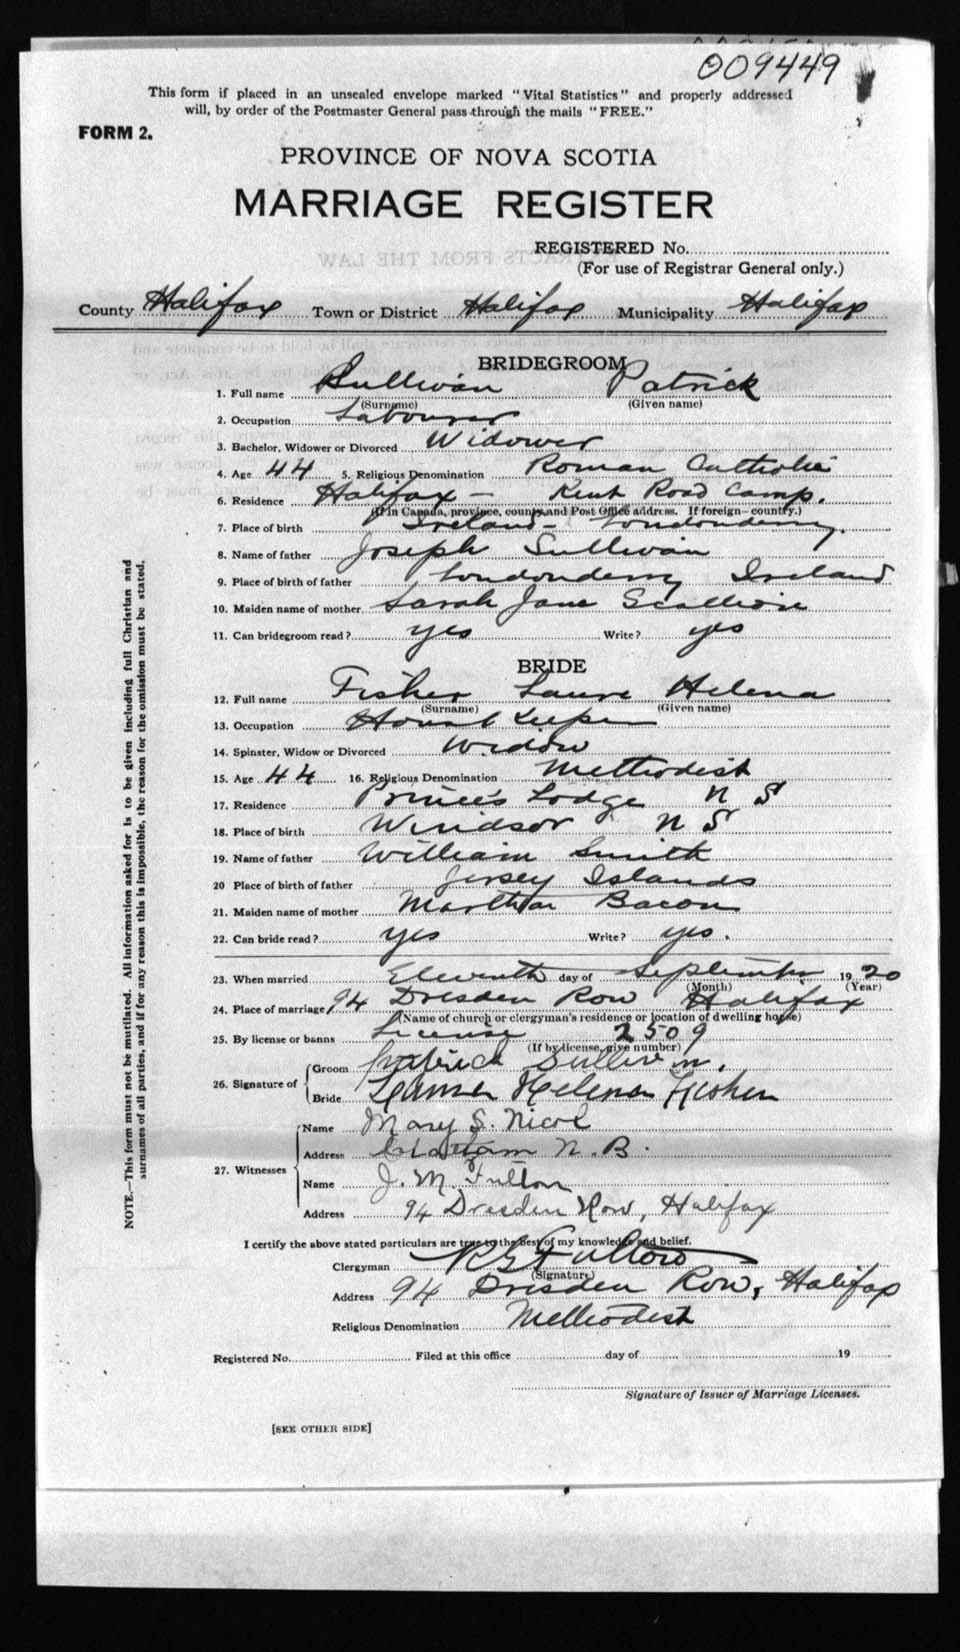 009449
This form if placed in an unsealed envelope marked "Vital Statistics" and properly addressed
will, by order of the Postmaster General pass through the mails "FREE."
FORM 2.
PROVINCE OF NOVA SCOTIA
MARRIAGE REGISTER
REGISTERED No.
(For use of Registrar General only.)
County Halifax Town or District Halifax Municipality Halifax
BRIDEGROOM
1. Full name Sullivan Patrick
(Surname) (Given name)
2. Occupation Labourer
3. Bachelor, Widower or Divorced Widower
4. Age 44 5. Religious Denomination Roman Catholic
6. Residence Halifax - Kent Road Camp.
(If in Canada, province, county and Post Office address. If foreign—country.)
7. Place of birth Ireland - Londonderry.
8. Name of father Joseph Sullivan
9. Place of birth of father Londonderry Ireland
10. Maiden name of mother Sarah Jane
11. Can bridegroom read? yes Write? yes
BRIDE
12. Full name Fisher Laura Helena
(Surname) (Given name)
13. Occupation House Keeper
14. Spinster, Widow or Divorced Widow
15. Age 44 16. Religious Denomination Methodist
17. Residence Princes Lodge N S
18. Place of birth Windsor N S
19. Name of father William Smith
20 Place of birth of father Jersey Islands
21. Maiden name of mother Martha Bacon
22. Can bride read? yes Write? yes.
23. When married Eleventh day of September 1920
(Month) (Year)
24. Place of marriage 94 Dresden Row Halifax
(Name of church or clergyman's residence or location of dwelling house)
25. By license or banns License 2509
(If by license, give number)
26. Signature of Groom Patrick Sullivan.
Bride Laura Helena Fisher
27. Witnesses
Name Mary S. Nicol
Address Chatham N.B.
Name J. M. Fulton
Address 94 Dresden Row, Halifax
I certify the above stated particulars are true to the best of my knowledge and belief.
Clergyman Fulton
(Signature)
Address 94 Dresden Row, Halifax
Religious Denomination Methodist
Registered No. Filed at this office day of 19
Signature of Issuer of Marriage Licenses.
[SEE OTHER SIDE]
NOTE.—This form must not be mutilated. All information asked for is to be given including full Christian and
surnames of all parties, and if for any reason this is impossible, the reason for the omission must be stated.